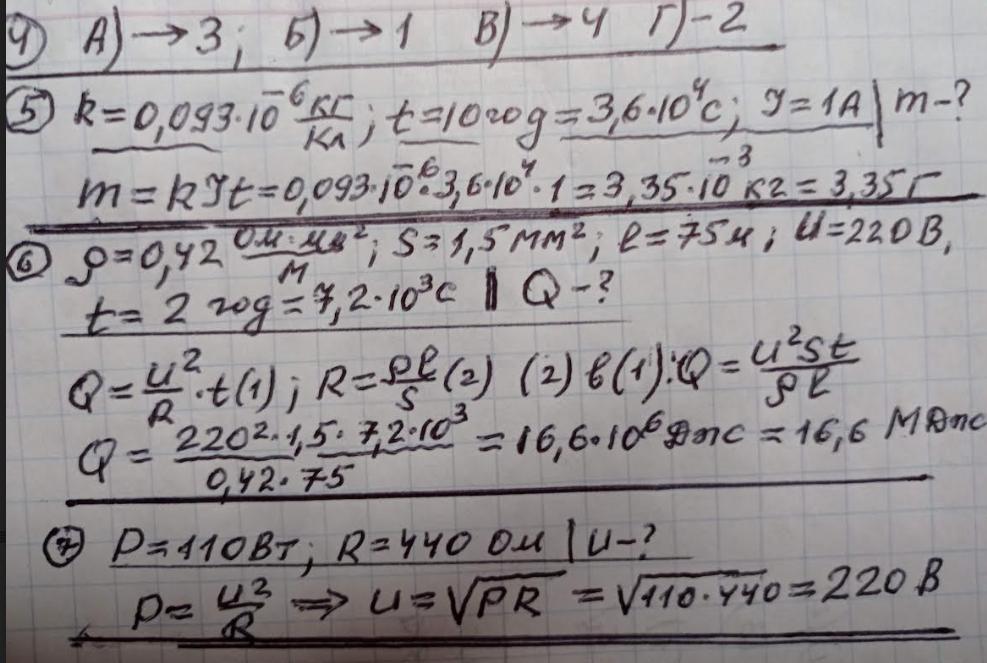 4) А) → 3; Б) → 1 В) → 4 Г) - 2
5) k = 0,093·10⁻⁶ кг/Кл; t = 10 год = 3,6·10⁴ с; I = 1А | m - ?
m = kIt = 0,093·10⁻⁶·3,6·10⁴·1 = 3,35·10⁻³ кг = 3,35 г
6) ρ = 0,42 Ом·мм²/м; S = 1,5 мм²; l = 75 м; U = 220 В,
t = 2 год = 7,2·10³ с | Q - ?
Q = U²/R · t (1); R = ρl/S (2) (2) в (1): Q = U²St/ρl
Q = 220²·1,5·7,2·10³/0,42·75 = 16,6·10⁶ Дж = 16,6 МДж
7) P = 110 Вт; R = 440 Ом | U - ?
P = U²/R ⇒ U = √PR = √110·440 = 220 В